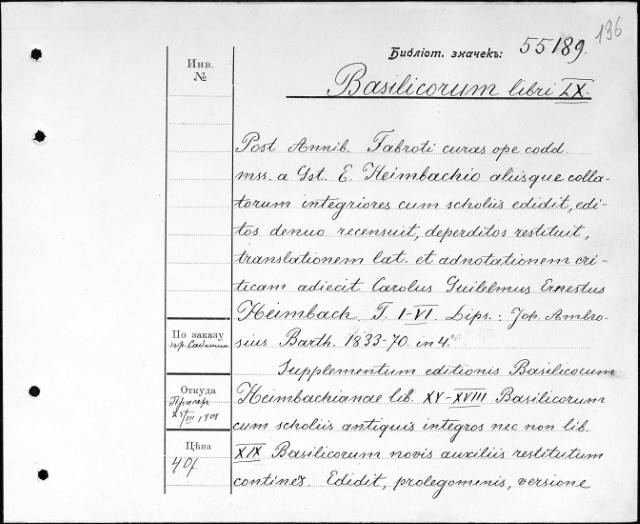 136
Библіот. значекъ: 55189.
Инв.
№
Basilicorum libri LX.
Post Annib. Fabroti curas ope codd.
mss. a Gst. E. Heimbachio aliisque colla-
torum integriores cum scholiis edidit, edi-
tos denuo recensuit, deperditos restituit,
translationem lat. et adnotationem cri-
ticam adiecit Carolus Guilelmus Ernestus
Heimbach. T. I-VI. Lips.: Joh. Ambro-
sius Barth. 1833-70. in 4°
По заказу
Supplementum editionis Basilicorum
Откуда
Heimbachianae lib. XV-XVIII Basilicorum
III, 1901
cum scholiis antiquis integros nec non lib.
Цѣна
XIX Basilicorum novis auxiliis restitutum
40f.
contines. Edidit, prolegomenis, versione